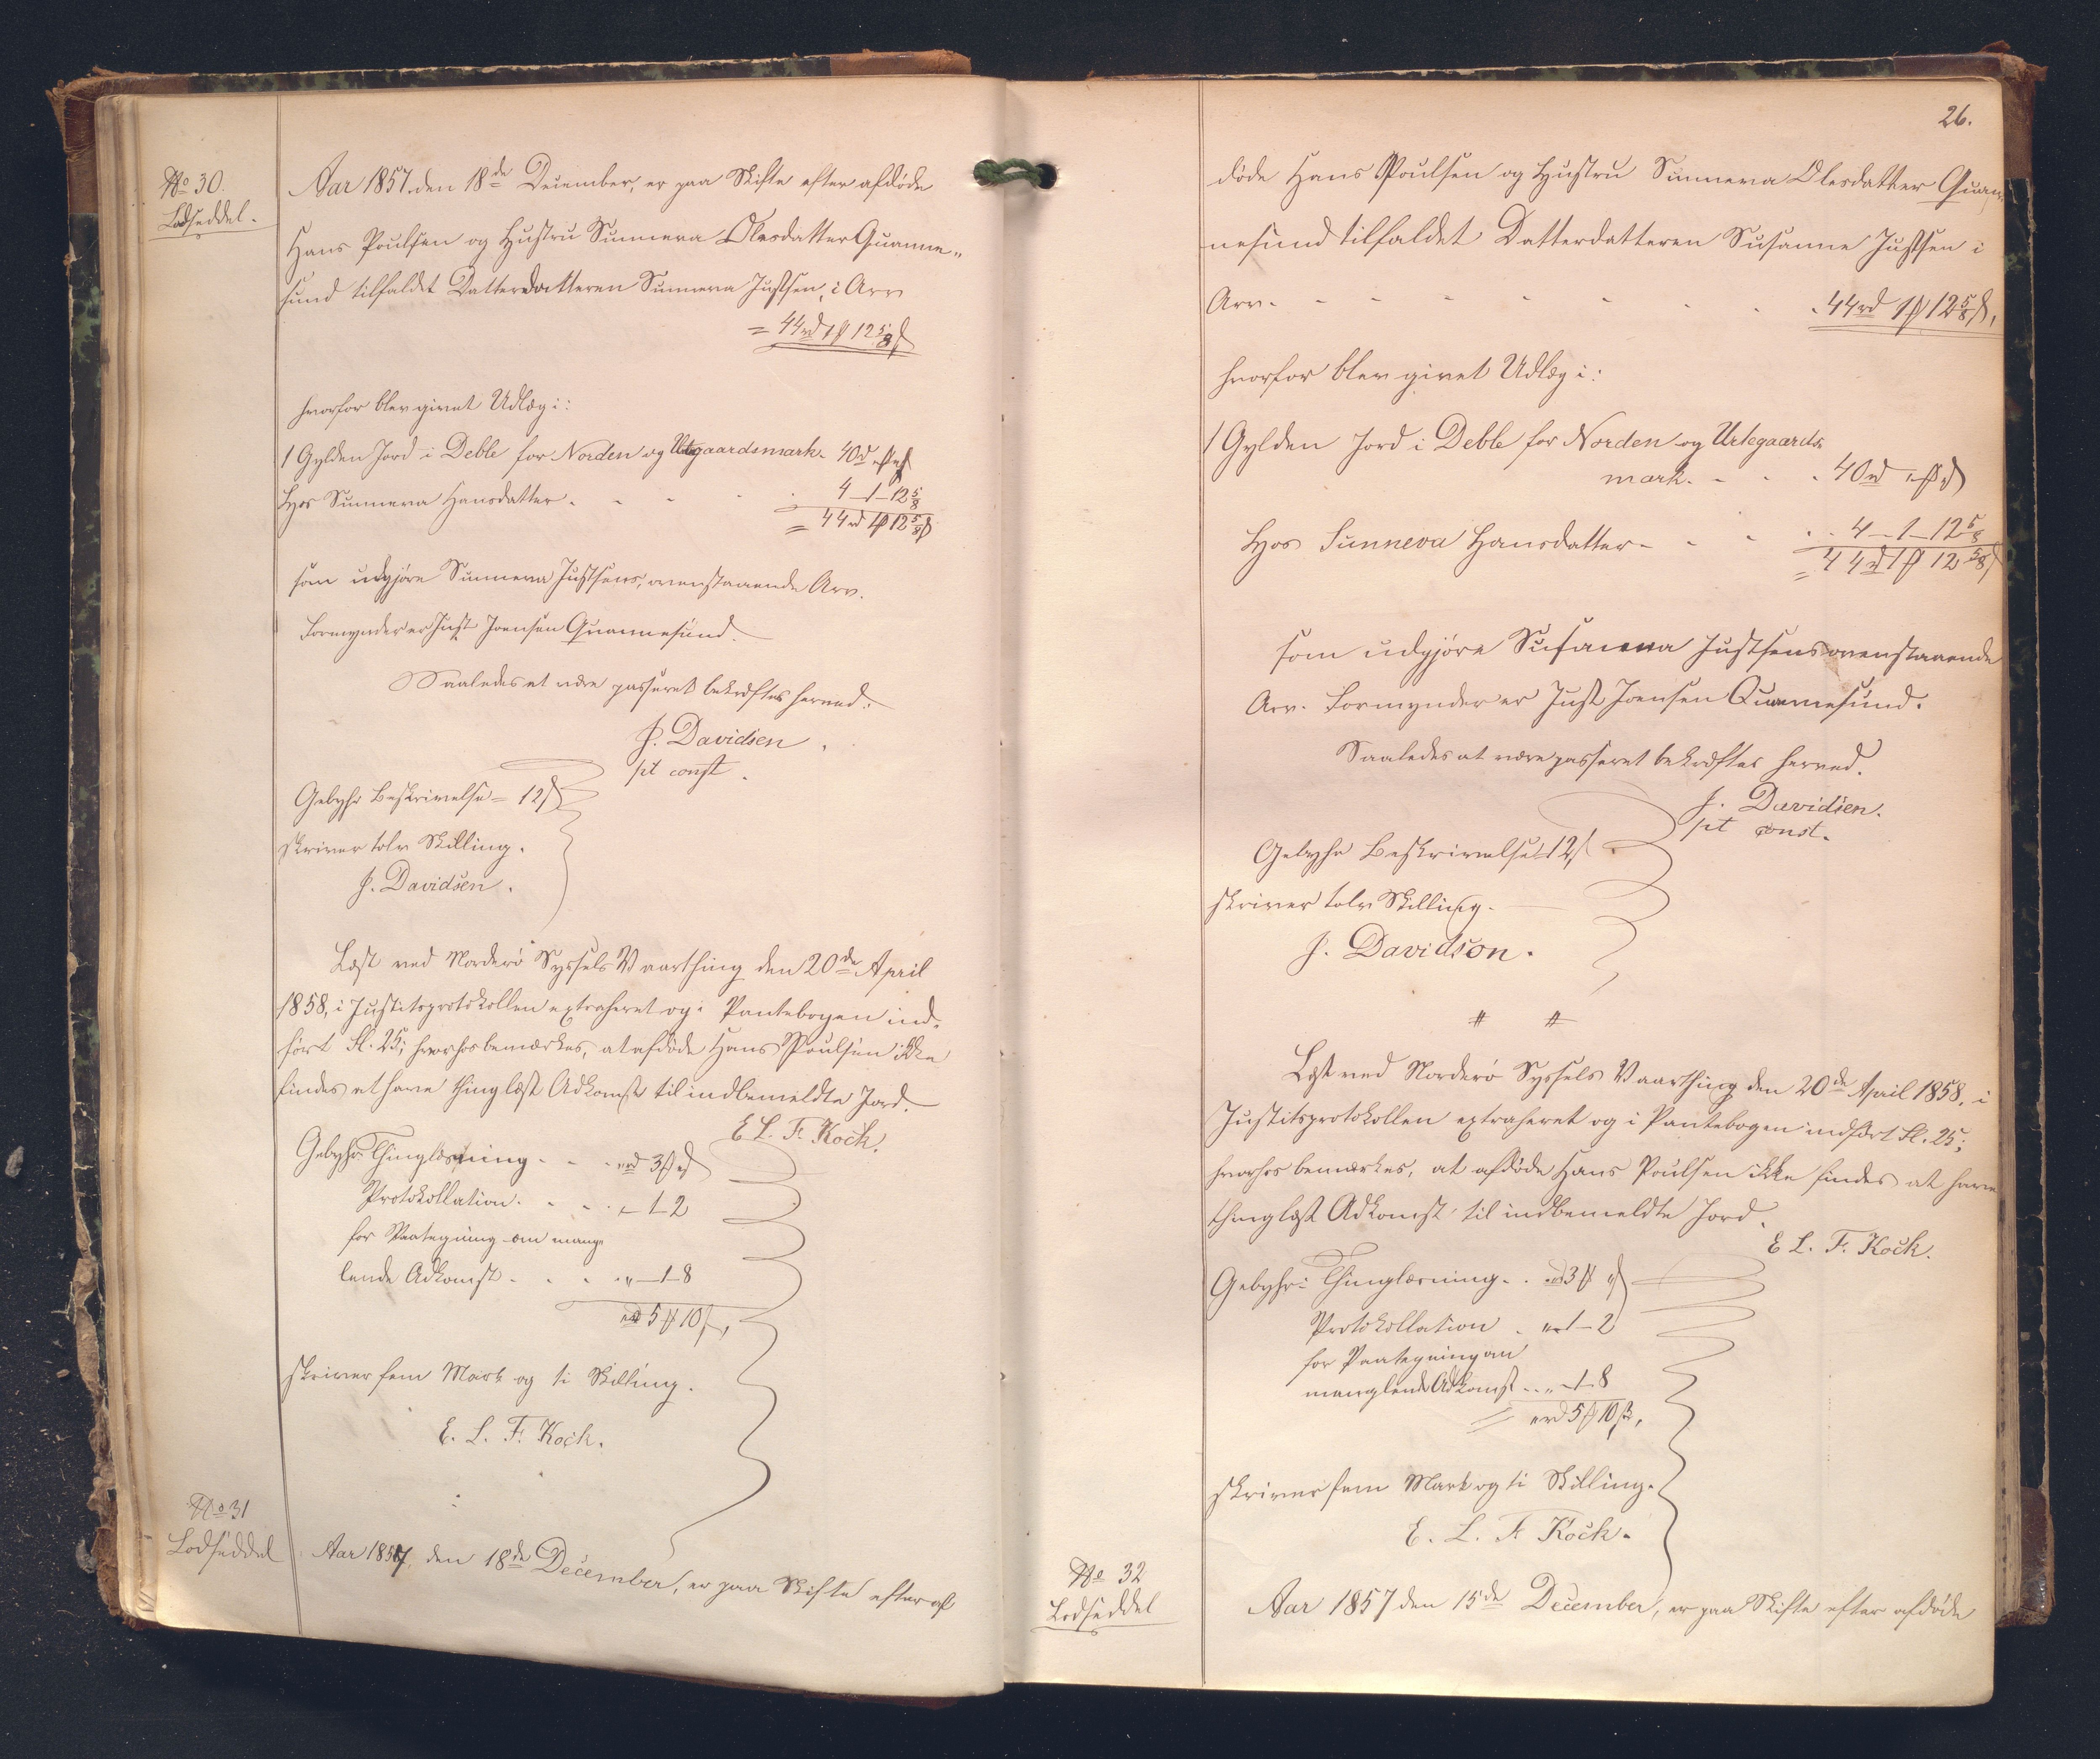 No 30.
Lodseddel.
Aar 1857 den 18de December, er paa Skifte efter afdöde
Hans Poulsen og Hustru Sunneva Olesdatter Quanne„
sund tilfaldet Datterdatteren Sunneva Justsen, i Arv
= 44rd 1 ℔ 12 5/8 ß
hvorfor blev givet Udlæg i:
1 Gylden Jord i Deble for Norden og Urtegaardsmark 40rd „ ℔ „ ß
Hos Sunneva Hansdatter . - - - . 4 - 1 - 12 5/8
= 44rd 1 ℔ 12 5/8 ß
som udgjöre Sunneva Justsens, ovenstaaende Arv.
Formynder er Just Joensen Quannesund.
Saaledes at være passeret bekræftes herved.
J. Davidsen.
pt const.
Gebyhr Beskrivelse = 12 ß
skriver tolv Skilling.
J. Davidsen.
Læst ved Norderö Syssels Vaarthing den 20de April
1858, i Justitsprotokollen extraheret og i Pantebogen ind„
fört Fl. 25; hvorhos bemærkes, at afdöde Hans Poulsen ikke
findes at have thinglæst Adkomst til indbemeldte Jord.
E L. F. Koch.
Gebyhr Thinglæsning . - - „rd 3 ℔ „ ß
Protokollation . - - . „ - 1 - 2
for Paategning om mang„
lende Adkomst . - - . „ - 1 - 8
„rd 5 ℔ 10 ß,
skriver fem Mark og ti Skilling.
E. L. F. Koch.
No 31
Lodseddel
Aar 1857, den 18de December, er paa Skifte efter af
26.
döde Hans Poulsen og Hustru Sunneva Olesdatter Quan„
nesund tilfaldet Datterdatteren Susanne Justsen i
Arv. - - - - - - . 44rd 1 ℔ 12 5/8 ß,
hvorfor blev givet Udlæg i:
1 Gylden Jord i Deble for Norden og Urtegaards„
mark. - - . 40rd „ ℔ „ ß
Hos Sunneva Hansdatter - - - . . 4 - 1 - 12 5/8
= 44rd 1 ℔ 12 5/8 ß
som udgjöre Susanna Justsens ovenstaaende
Arv. Formynder er Just Joensen Quannesund.
Saaledes at være passeret bekræftes herved.
J. Davidsen.
pt const.
Gebyhr Beskrivelse 12 ß
skriver tolv Skilling.
J. Davidson.
# #
Læst ved Norderö Syssels Vaarthing den 20de April 1858, i
Justitsprotokollen extraheret og i Pantebogen indfört Fl. 25;
hvorhos bemærkes, at afdöde Hans Poulsen ikke findes at have
thinglæst Adkomst til indbemeldte Jord.
E L. F. Koch.
Gebyhr: Thinglæsning . . „rd 3 ℔ „ ß
Protokollation . „ - 1 - 2
for Paategning om
manglende Adkomst . . „ - 1 - 8
= „rd 5 ℔ 10 ß,
skriver fem Mark og ti Skilling.
E. L. F. Koch.
No 32
Lodseddel
Aar 1857 den 15de December, er paa Skifte efter afdöde